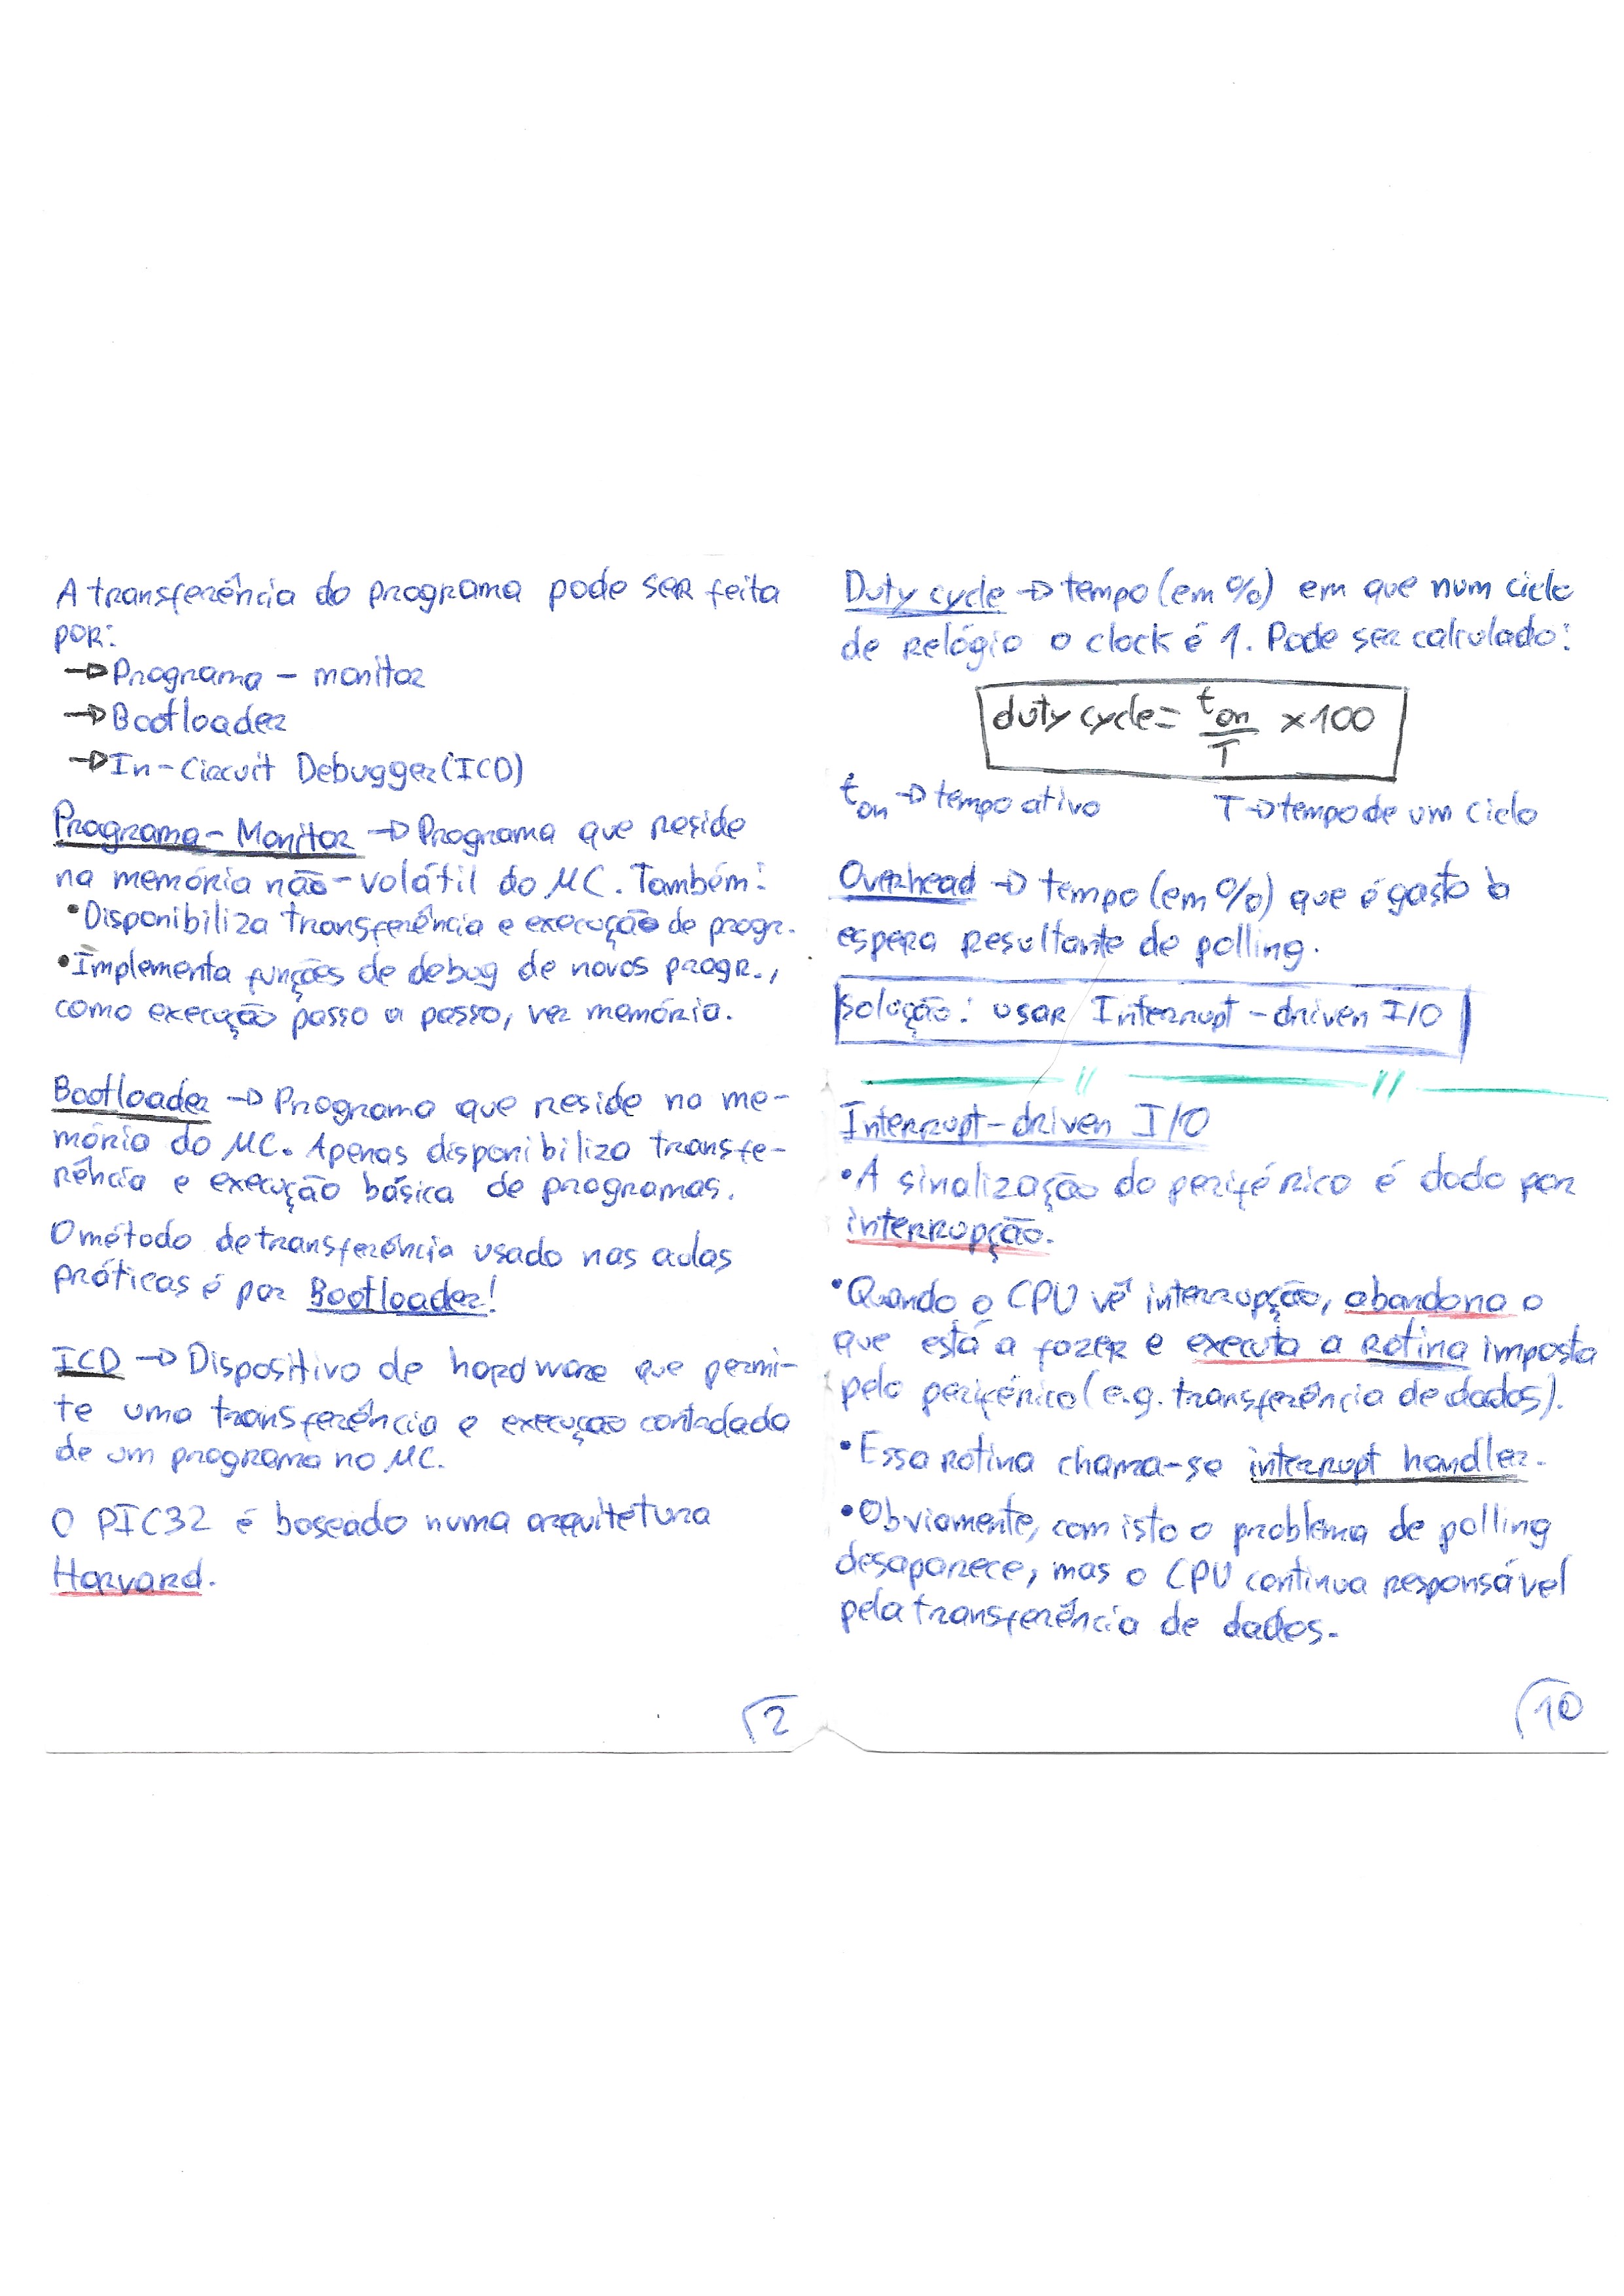 A transferência do programa pode ser feita
por:
→ Programa - monitor
→ Bootloader
→ In-Circuit Debugger (ICD)
Programa - Monitor → Programa que reside
na memória não-volátil do μC. Também:
• Disponibiliza transferência e execução de progr.
• Implementa funções de debug de novos progr.,
como execução passo a passo, ver memória.
Bootloader → Programa que reside na me-
mória do μC. Apenas disponibiliza transfe-
rência e execução básica de programas.
O método de transferência usado nas aulas
práticas é por Bootloader!
ICD → Dispositivo de hardware que permi-
te uma transferência e execução
de um programa no μC.
O PIC32 é baseado numa arquitetura
Harvard.
2
Duty cycle → tempo (em %) em que num ciclo
de relógio o clock é 1. Pode ser calculado:
duty cycle = ton/T × 100
ton → tempo ativo T → tempo de um ciclo
Overhead → tempo (em %) que é gasto à
espera resultante de polling.
solução: usar Interrupt - driven I/O
Interrupt - driven I/O
• A sinalização do periférico é dado por
interrupção.
• Quando o CPU vê interrupção, abandona o
que está a fazer e executa a rotina imposta
pelo periférico (e.g. transferência de dados).
• Essa rotina chama-se interrupt handler.
• Obviamente, com isto o problema de polling
desaparece, mas o CPU continua responsável
pela transferência de dados.
10